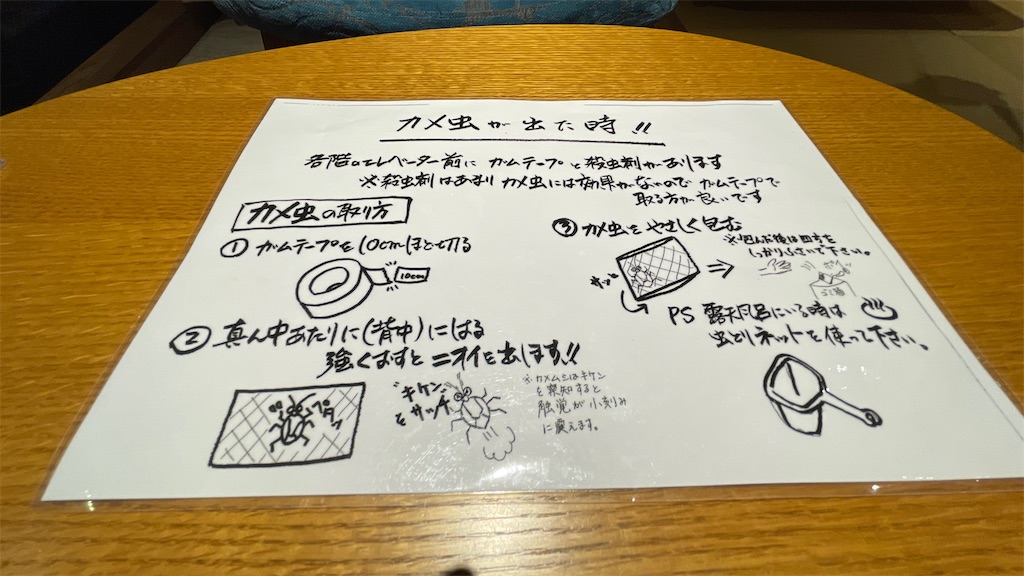 カメ虫が出た時!!
各階のエレベーター前に ガムテープと殺虫剤があります
※殺虫剤はあまりカメ虫には効果がないので ガムテープで
取る方が良いです
カメ虫の取り方
① ガムテープを10cmほど切る
10cm
② 真ん中あたりに(背中)にはる
強くおすとニオイを出します!!
ペタッ
"キケン"
とサッチ
※カメムシはキケン
を察知すると
触覚が小刻み
に震えます。
③ カメ虫をやさしく包む
※包んだ後は四方を
しっかりふさいで下さい。
サッ
PS 露天風呂にいる時は
虫とりネットを使って下さい。